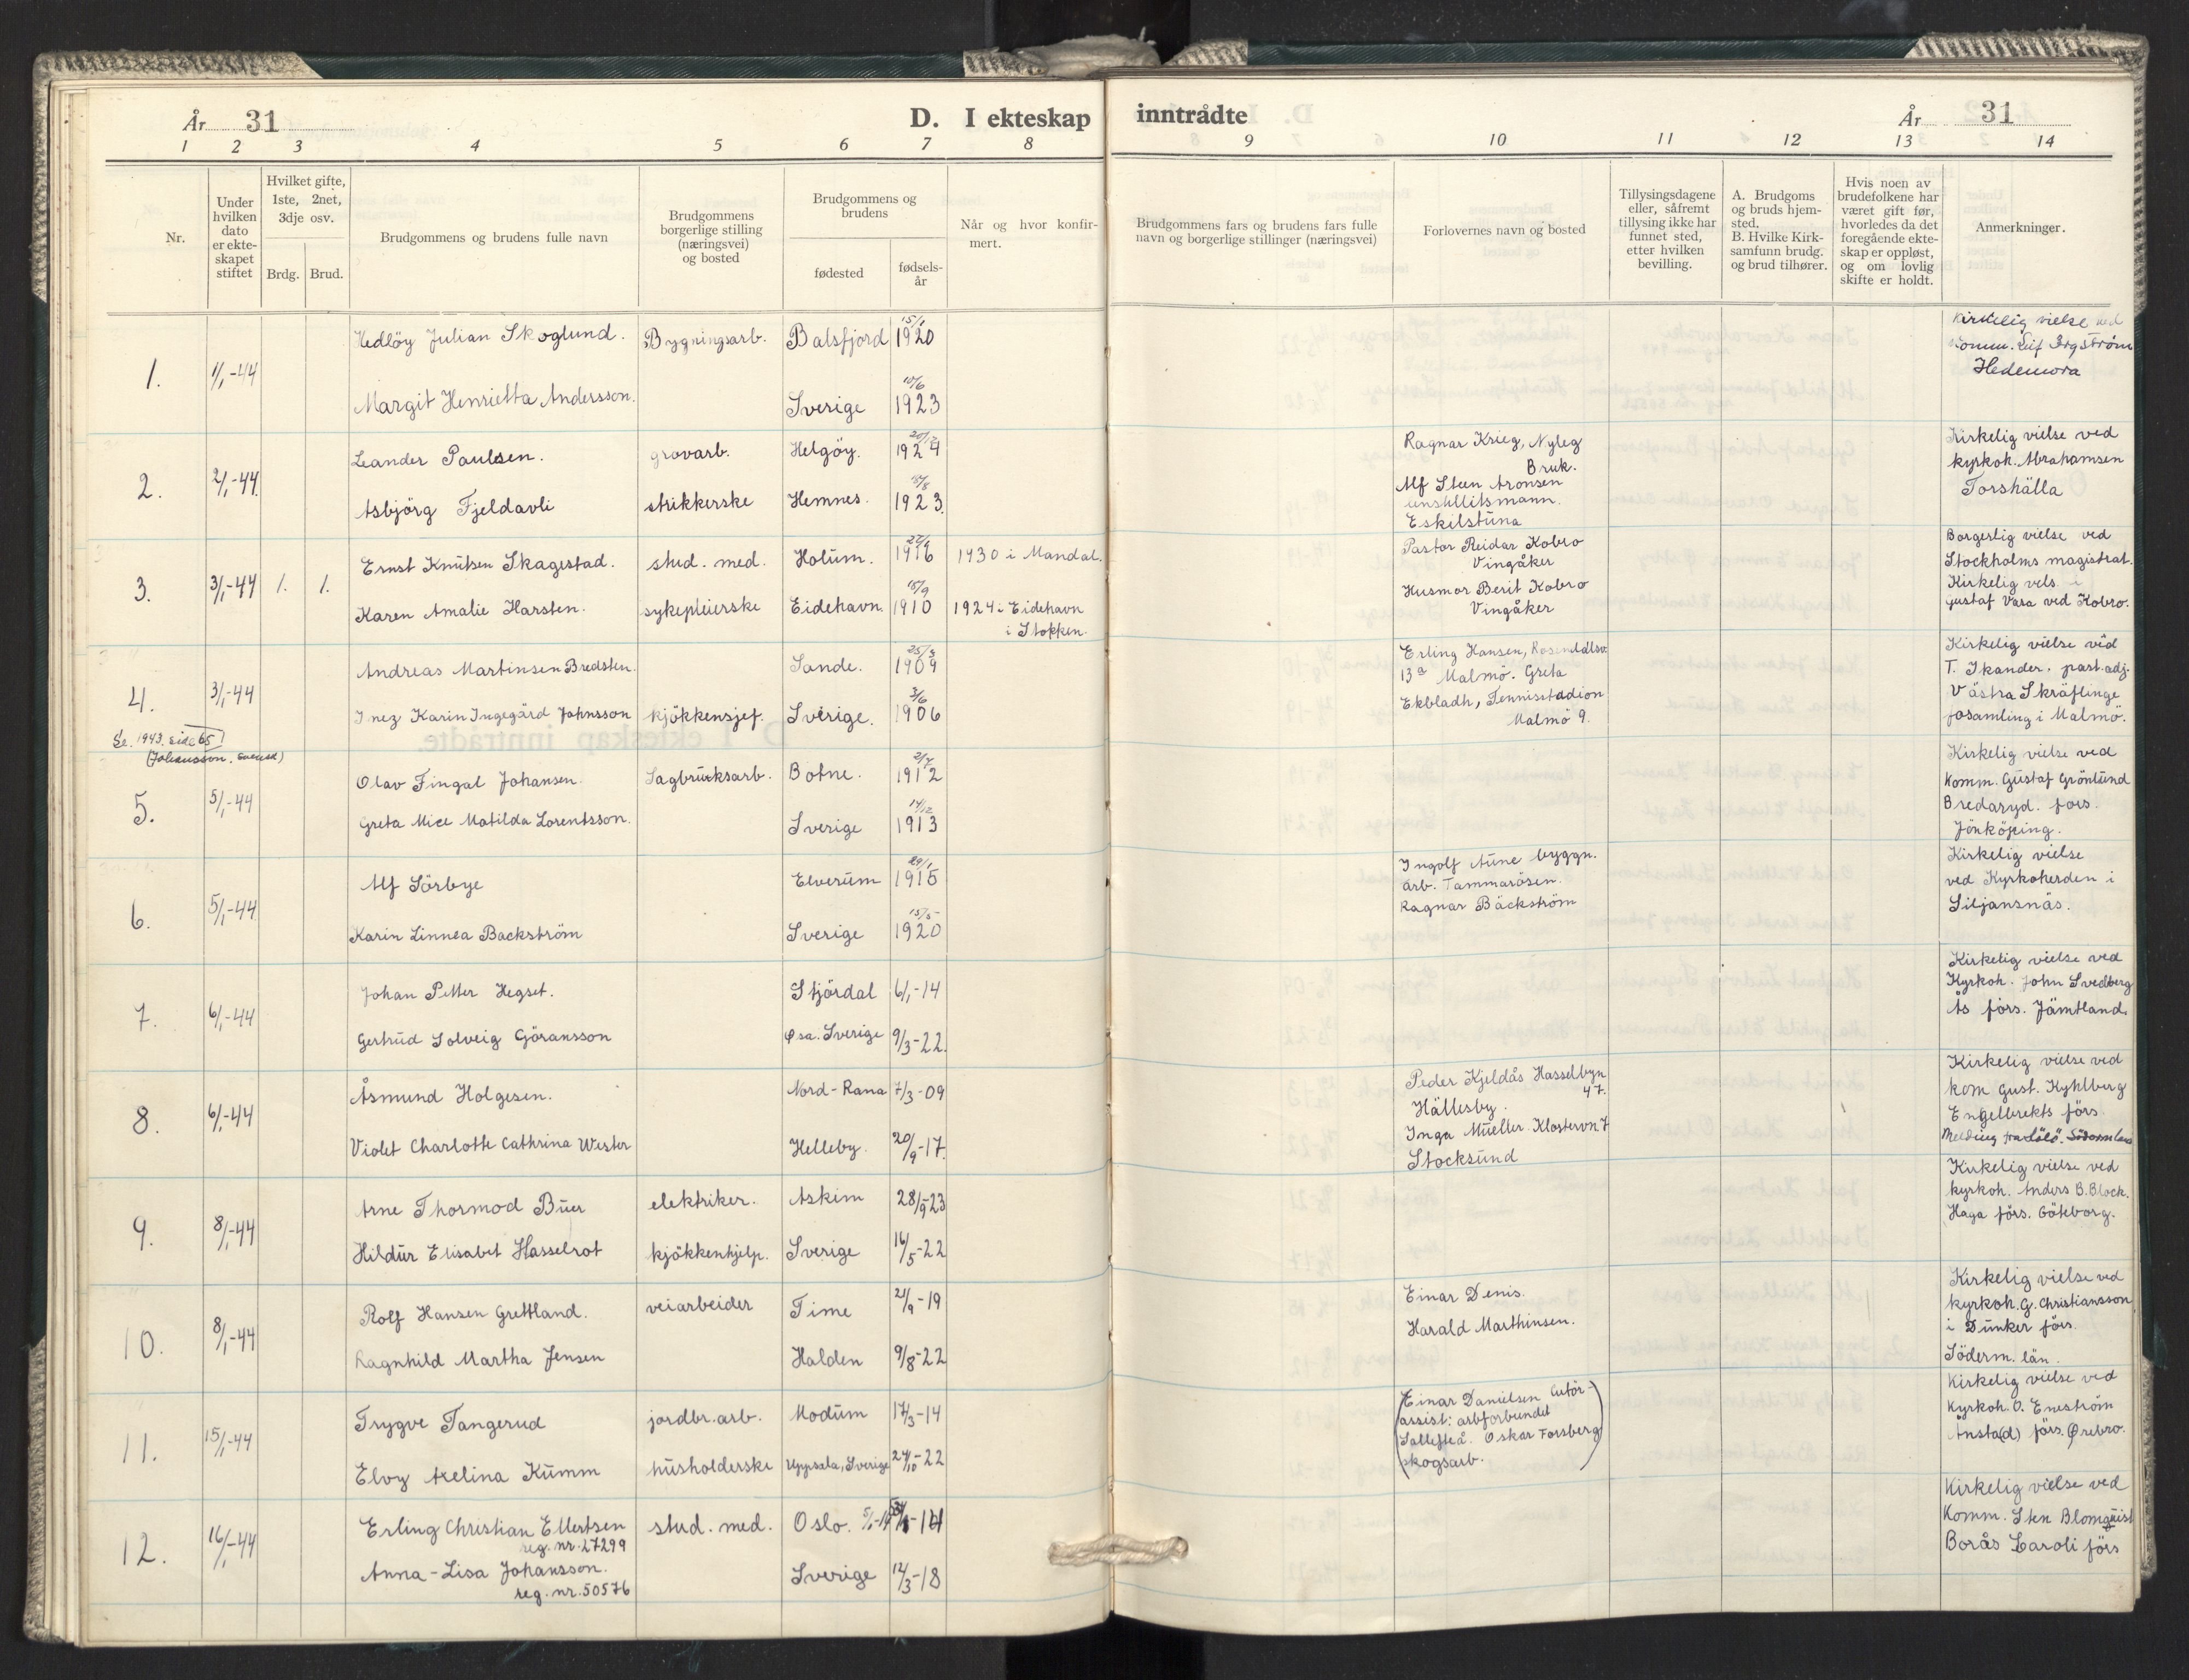 År 31 D. I ekteskap inntrådte År 31
1 2 3 4 5 6 7 8 9 10 11 12 13 14
Nr.
Under hvilken dato er ekte-skapet stiftet
Hvilket gifte, 1ste, 2net, 3dje osv.
Brdg. Brud.
Brudgommens og brudens fulle navn
Brudgommens borgerlige stilling (næringsvei) og bosted
Brudgommens og brudens
fødested
fødsels-år
Når og hvor konfir-mert.
Brudgommens fars og brudens fars fulle navn og borgerlige stillinger (næringsvei)
Forlovernes navn og bosted
Tillysingsdagene eller, såfremt tillysing ikke har funnet sted, etter hvilken bevilling.
A. Brudgoms og bruds hjem-sted. B. Hvilke Kirk-samfunn brudg. og brud tilhører.
Hvis noen av brudefolkene har været gift før, hvorledes da det foregående ekte-skap er oppløst, og om lovlig skifte er holdt.
Anmerkninger.
1. 1/1-44
Hedlöy Julian Skoglund. Bygningsarb. Balsfjord 15/1 1920
Margit Henrietta Andersson. Sverige 10/6 1923
Kirkelig vielse ved
Komm. Leif
Hedemora
2. 2/1-44
Leander Paulsen. grovarb. Helgöy. 20/12 1924
Asbjörg Fjeldavli strikkerske Hemnes. 1923.
Ragnar Krieg, Nyleg
Bruk.
Alf Steen Aronsen
Eskilstuna
Kirkelig vielse ved
kyrkoh. Abrahamsen
Torshälla
3. 3/1-44 1. 1.
Ernst Knutsen Skagestad. stud. med. Holum. 1916 1930 i Mandal.
Karen Amalie Harsten. sykepleierske Eidehavn. 15/9 1910 1924 i Eidehavn
i Stokken.
Pastor Reidar Kobro
Vingåker
Husmor Berit Kobro
Vingåker
Borgerlig vielse ved
Stockholms magistrat.
Kirkelig vels. i
Gustaf Vasa ved Kobro.
4. 3/1-44
Andreas Martinsen Bredsten. Sande. 25/3 1909
Inez Karin Ingegärd Johnsson kjökkensjef. Sverige. 3/6 1906
Erling Hansen, Rosendalsv.
13a Malmö. Greta
Ekbladh, Tennisstadion
Malmö 9.
Kirkelig vielse ved
T. Skander. past. adj.
Västra Skräflinge
församling i Malmö.
Se. 1943. side 65
(Johansson, svensk)
5. 5/1-44
Olav Fingal Johansen. Sagbruksarb. Botne. 2/7 1912
Greta Alice Matilda Lorentsson. Sverige 14/12 1913
Kirkelig vielse ved
Komm. Gustaf Grönlund
Bredaryd. förs.
Jönköping.
6. 5/1-44
Alf Sörbye Elverum 29/1 1915
Karin Linnea Backström Sverige 15/5 1920
Ingolf Aune byggn.
arb. Tammarösen.
Ragnar Bäckström
Kirkelig vielse
ved Kyrkoherden i
Siljansnäs.
7. 6/1-44
Johan Petter Hegset. Stjördal 6/1-14
Gertrud Solveig Göransson Øsa. Sverige 9/3-22.
Kirkelig vielse ved
Kyrkoh. John Svedberg
Ås förs. Jämtland.
8. 6/1-44
Åsmund Holgesen. Nord-Rana 7/3-09
Violet Charlotte Cathrina Wester Helleby. 20/9-17.
Peder Kjeldås Hasselbyn
47.
Hällesby.
Inga Mueller Klostervn 7
Stocksund
Kirkelig vielse ved
kom Gust. Kyhlberg
Engelbrekts förs.
Melding fra
9. 8/1-44
Arne Thormod Buer elektriker. Askim 28/9-23
Hildur Elisabet Hasselrot kjökkenhjelp. Sverige 16/5-22
Kirkelig vielse ved
kyrkoh. Anders B. Block.
Haga förs. Göteborg.
10. 8/1-44
Rolf Hansen Grettland. veiarbeider Time 21/9-19
Ragnhild Martha Jensen Halden 9/8-22
Einar Denis.
Harald Marthinsen.
Kirkelig vielse ved
kyrkoh. G. Christiansson
i Dunker förs.
Söderm. län.
11. 15/1-44
Trygve Tangerud jordbr. arb. Modum 17/3-14
Elvy Axelina Kumm husholderske Uppsala, Sverige 24/10-22
(Einar Danielsen
assist: arbforbundet
Sollefteå. Oskar Forsberg
skogsarb.)
Kirkelig vielse ved
Kyrkoh. O. Eneström
Ånsta(d) förs. Ørebro.
12. 16/1-44
Erling Christian Ellertsen stud. med. Oslo. 5/1-14
reg. nr. 27299
Anna-Lisa Johansson. Sverige 12/3-18
reg. nr. 50576
Kirkelig vielse ved
Komm. Sten Blomquist
Borås Caroli förs